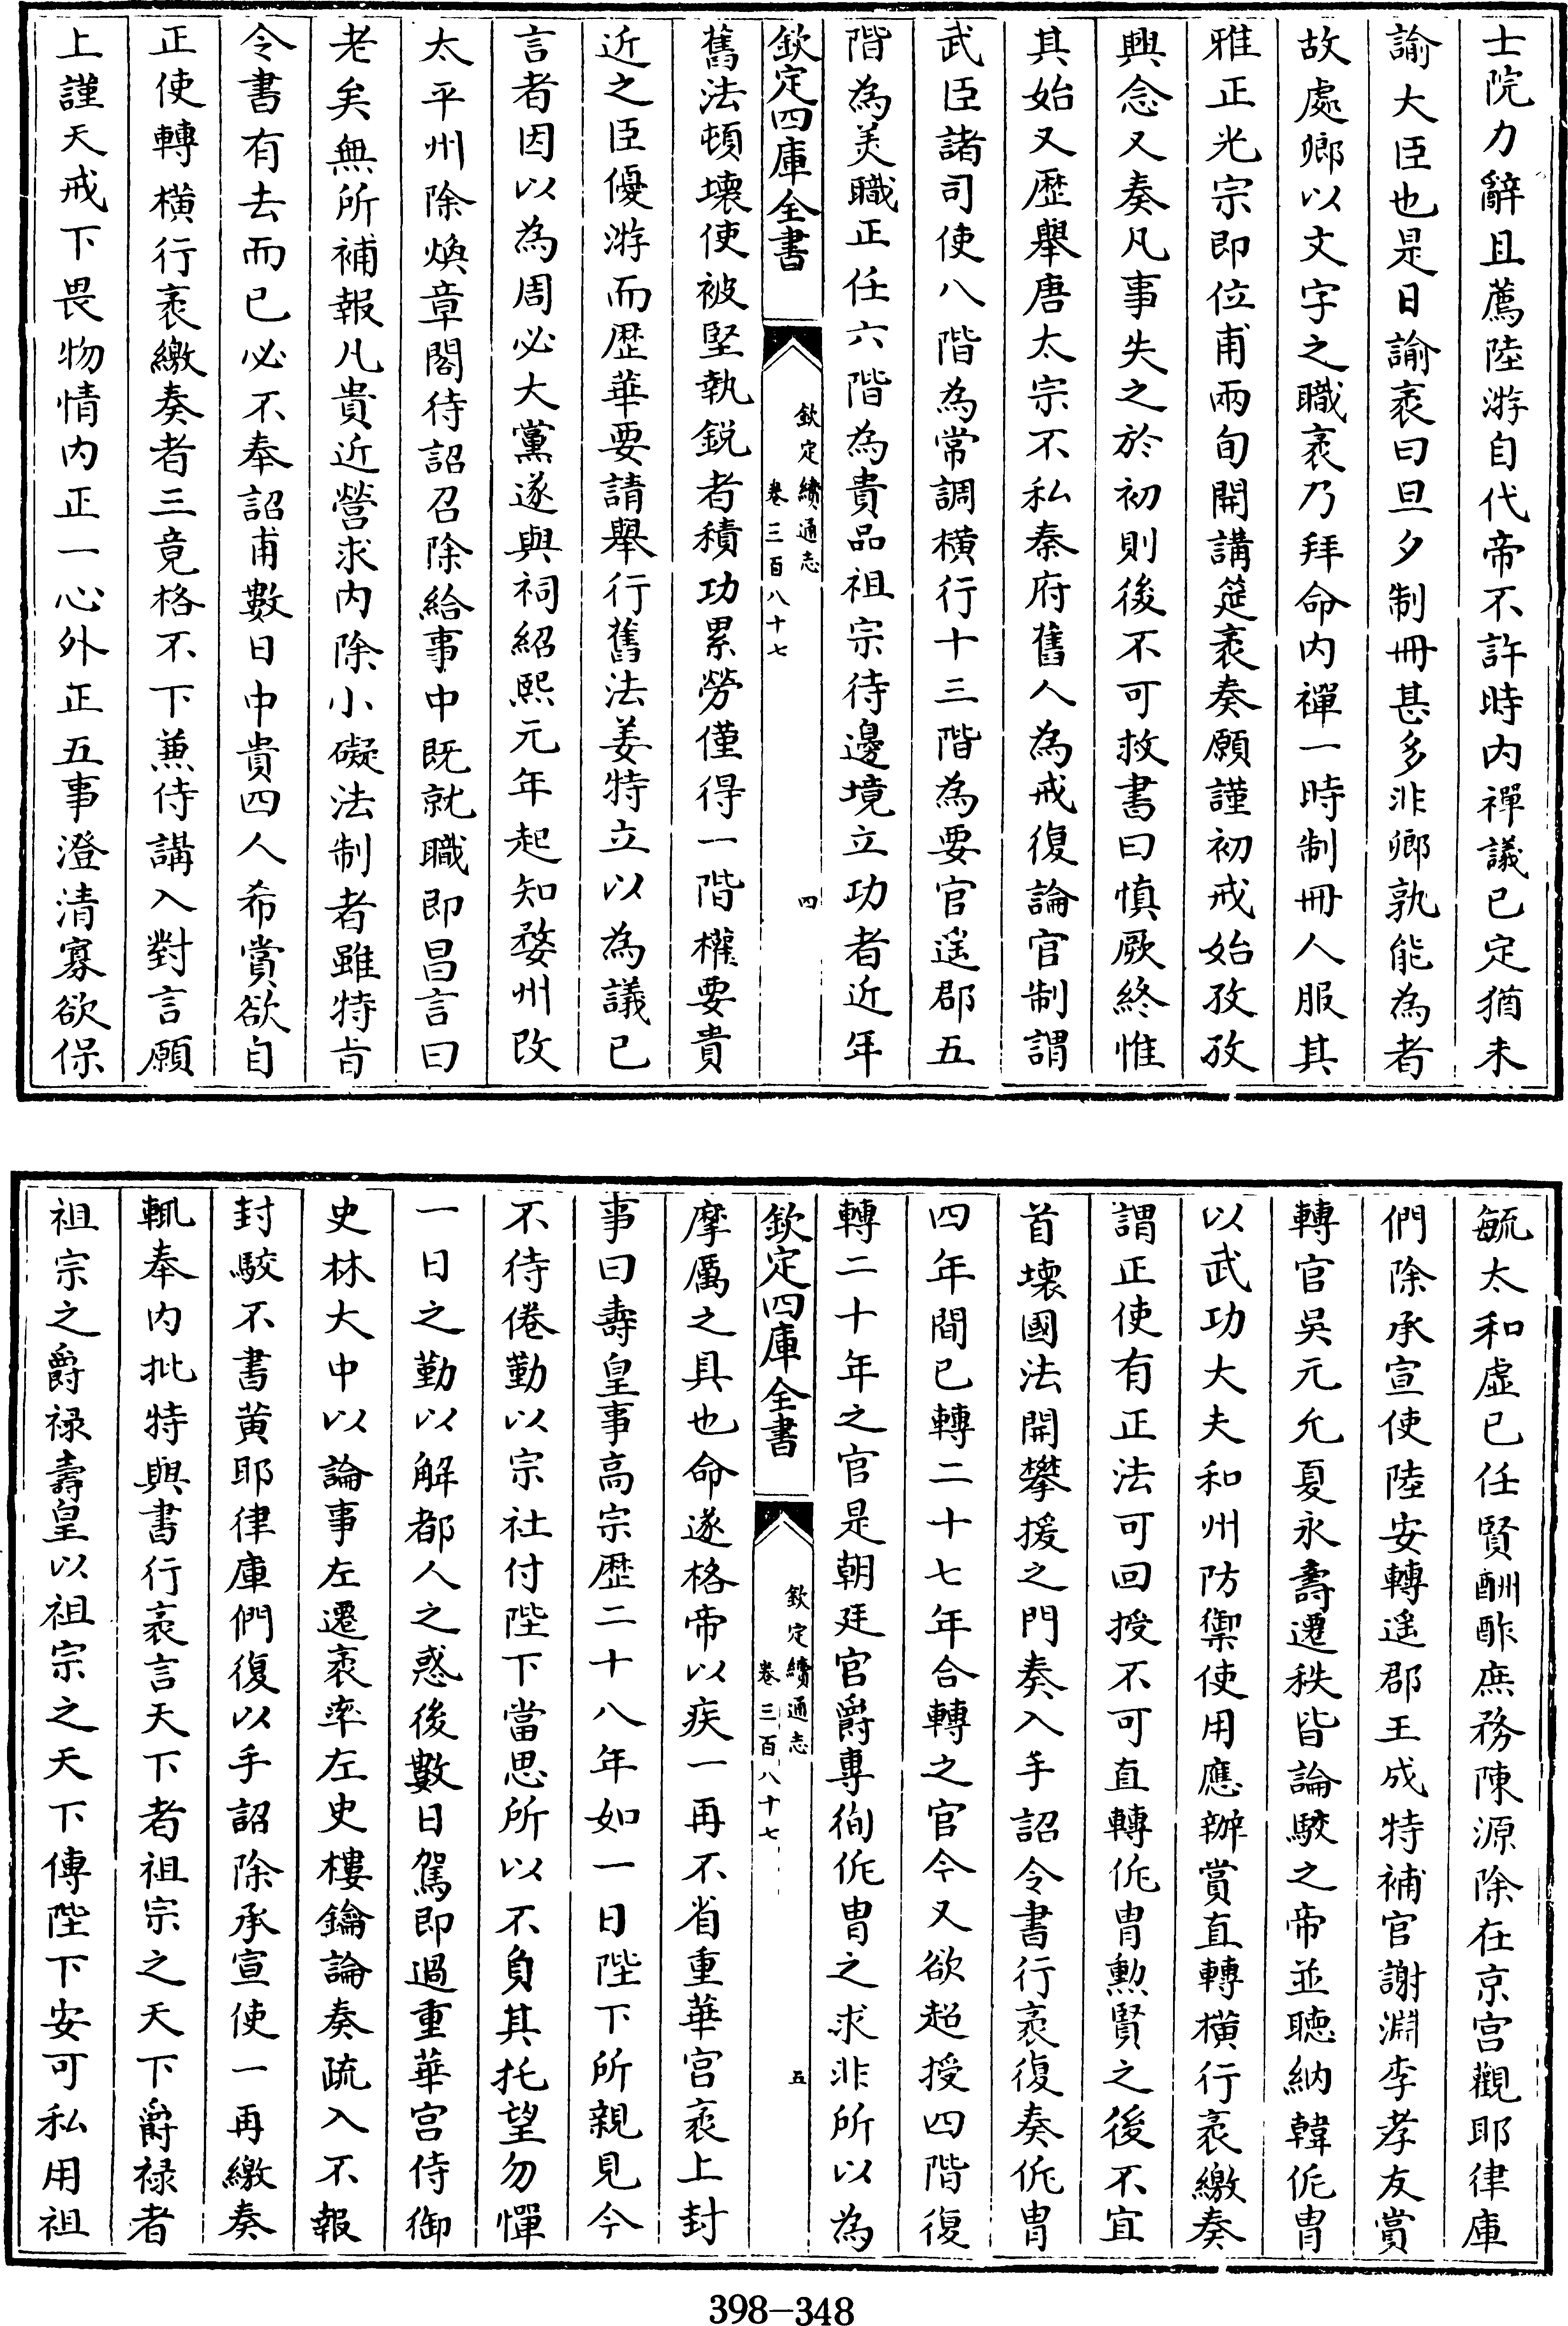 士院力辭且薦陸游自代帝不許時内禪議已定猶未
諭大臣也是日諭袤曰旦夕制冊甚多非卿孰能為者
故處卿以文字之職袤乃拜命内禪一時制冊人服其
雅正光宗即位甫兩旬開講筵袤奏願謹初戒始孜孜
興念又奏凡事失之於初則後不可救書曰慎厥終惟
其始又歴舉唐太宗不私秦府舊人為戒復論官制謂
武臣諸司使八階為常調横行十三階為要官遥郡五
階為美職正任六階為貴品祖宗待邊境立功者近年
欽定四庫全書
欽定續通志
卷三百八十七
四
舊法頓壞使被堅執鋭者積功累勞僅得一階權要貴
近之臣優游而歴華要請舉行舊法姜特立以為議已
言者因以為周必大黨遂與祠紹熙元年起知婺州改
太平州除煥章閣待詔召除給事中既就職即昌言曰
老矣無所補報凡貴近營求内除小礙法制者雖特㫖
令書有去而已必不奉詔甫數日中貴四人希賞欲自
正使轉横行袤繳奏者三竟格不下兼侍講入對言願
上謹天戒下畏物情内正一心外正五事澄清寡欲保
毓太和虚已任賢酬酢庶務陳源除在京宫觀耶律庫
們除承宣使陸安轉遥郡王成特補官謝淵李孝友賞
轉官吳元允夏永壽遷秩皆論駮之帝並聴納韓侂胄
以武功大夫和州防禦使用應辦賞直轉横行袤繳奏
謂正使有正法可回授不可直轉侂胄勲賢之後不宜
首壞國法開攀援之門奏入手詔令書行袤復奏侂胄
四年間已轉二十七年合轉之官今又欲超授四階復
轉二十年之官是朝廷官爵專徇侂胄之求非所以為
欽定四庫全書
欽定續通志
卷三百八十七
五
摩厲之具也命遂格帝以疾一再不省重華宫袤上封
事曰壽皇事高宗歴二十八年如一日陛下所親見今
不待倦勤以宗社付陛下當思所以不負其托望勿憚
一日之勤以解都人之惑後數日駕即過重華宫侍御
史林大中以論事左遷袤率左史樓鑰論奏疏入不報
封駮不書黄耶律庫們復以手詔除承宣使一再繳奏
輒奉内批特與書行袤言天下者祖宗之天下爵禄者
祖宗之爵禄壽皇以祖宗之天下傳陛下安可私用祖
398-348